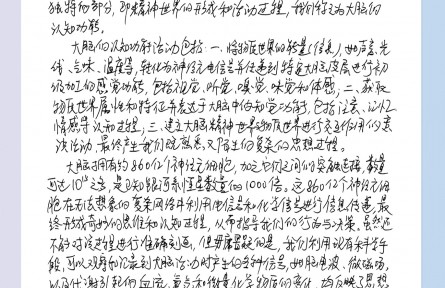 独特的部分，即精神世界的形成和活动过程，我们称为大脑的
认知功能。
大脑的认知功能活动包括：一、将物质世界的能量（信息），如声音、光
线、气味、温度等，转化为神经电信号并传递到特定大脑皮层进行初
级加工的感觉功能，包括视觉、听觉、嗅觉、味觉和体感；二、获取
物质世界属性和特征并表达于大脑中的知觉功能，包括注意、记忆、
情感等认知过程；三、建立大脑精神世界与物质世界进行交互作用的意
识活动，最终产生我们既熟悉又陌生的复杂的思想过程。
大脑拥有约860亿个神经元细胞，加之它们之间的突触连接，数量
可达10 之多，是已知银河系恒星数量的1000倍。这860亿个神经元细
胞在无法想象的复杂网络中利用电信号和化学信号进行信息传递，最
终形成奇妙的思维和认知过程，从而指导我们的行为与决策。虽然还
不能对该过程进行准确刻画，但毋庸置疑的是，我们利用现有科学手
段，可以观察和记录到大脑活动时产生的各种信号，如脑电波、微磁场，
以及代谢引起的血流、氧含和微量化学物质的变化，均反映了思想